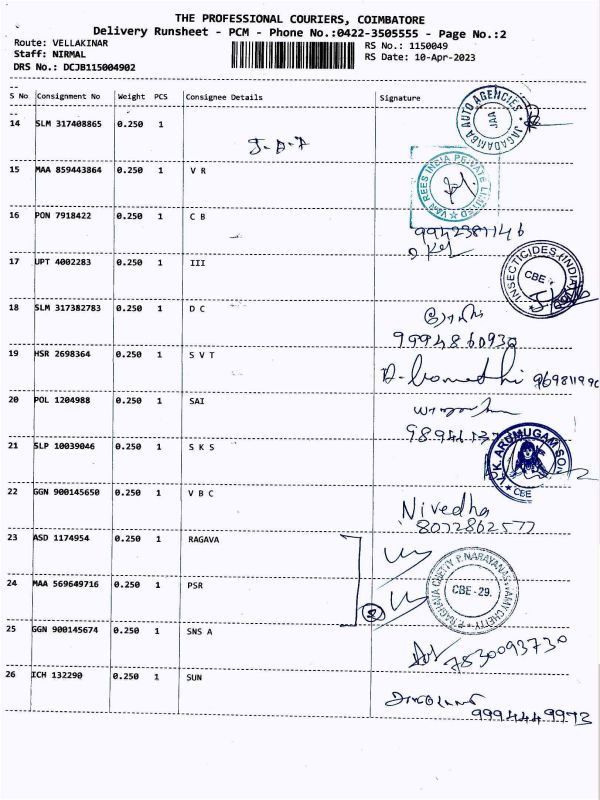 THE PROFESSIONAL COURIERS, COIMBATORE
Delivery Runsheet - PCM - Phone No.:0422-3505555 - Page No.:2
Route: VELLAKINAR RS No.: 1150049
Staff: NIRMAL RS Date: 10-Apr-2023
DRS No.: DCJB115004902
S No Consignment No Weight PCS Consignee Details Signature
14 SLM 317408865 0.250 1
JAGADAMBA AUTO AGENCIES JAA
J-A-A
15 MAA 859443864 0.250 1 V R
VAN REES INDIA PRIVATE LIMITED
16 PON 7918422 0.250 1 C B
9942381146
17 UPT 4002283 0.250 1 III
INSECTICIDES (INDIA) CBE
18 SLM 317382783 0.250 1 D C
9994860930
19 HSR 2698364 0.250 1 S V T
20 POL 1204988 0.250 1 SAI
21 SLP 10039046 0.250 1 S K S
ARUMUGAM SON
CBE
22 GGN 900145650 0.250 1 V B C
Nivedha
8072862577
23 ASD 1174954 0.250 1 RAGAVA
24 MAA 569649716 0.250 1 PSR
2
P. RAGHAVA CHETTY P. NARAYANASWAMY CHETTY
CBE - 29.
25 GGN 900145674 0.250 1 SNS A
7830093730
26 ICH 132290 0.250 1 SUN
9994449973